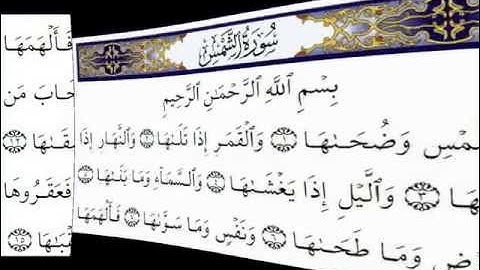 سُورَةُ الشَّمْسِ
بِسْمِ اللَّهِ الرَّحْمَٰنِ الرَّحِيمِ
مْسِ وَضُحَىٰهَا ١ وَالْقَمَرِ إِذَا تَلَىٰهَا ٢ وَالنَّهَارِ إِذَا
هَا ٣ وَالَّيْلِ إِذَا يَغْشَىٰهَا ٤ وَالسَّمَاءِ وَمَا بَنَىٰهَا ٥
ضِ وَمَا طَحَىٰهَا ٦ وَنَفْسٍ وَمَا سَوَّىٰهَا ٧ فَأَلْهَمَهَا
فَأَلْهَمَهَا
خَابَ مَن
قْيَٰهَا ١٣
فَعَقَرُوهَا
بَٰهَا ١٥